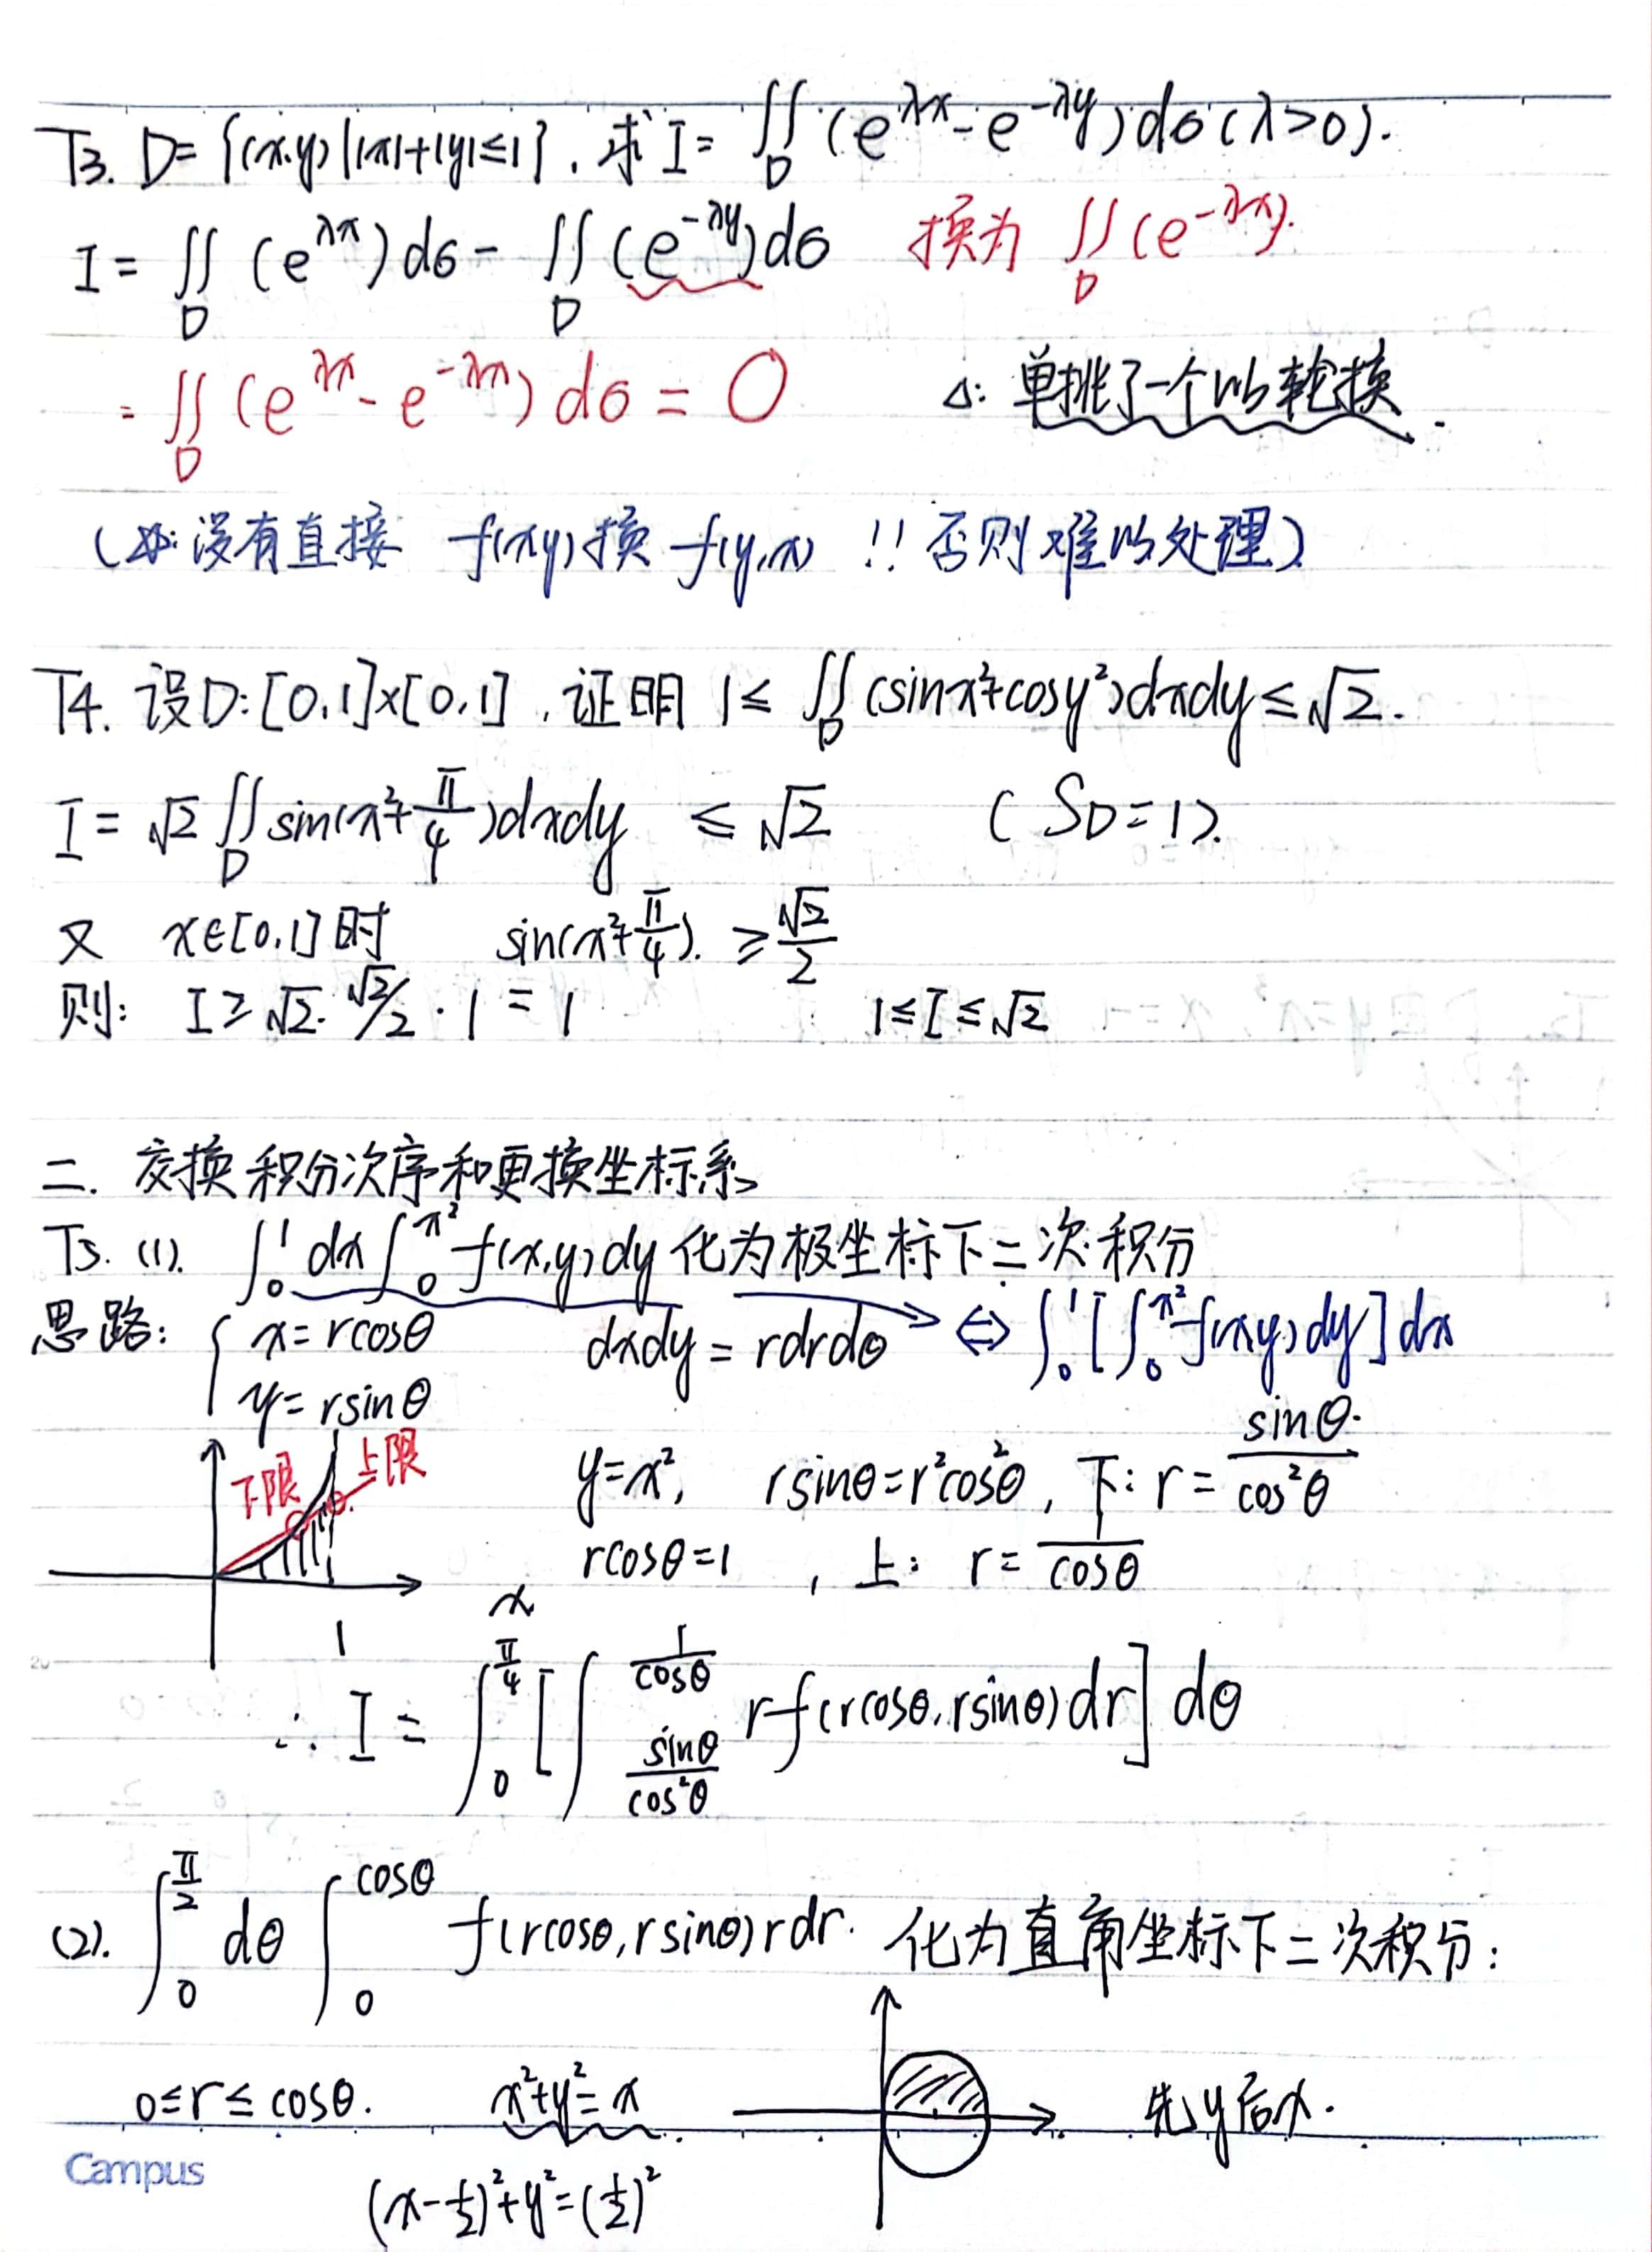 T3. D= {(x,y) | |x|+|y|≤1}, 求 I= ∬_D (e^{λx} - e^{-λy}) dσ (λ>0).
I = ∬_D (e^{λx}) dσ - ∬_D (e^{-λy}) dσ 换为 ∬_D (e^{-λx}).
= ∬_D (e^{λx} - e^{-λx}) dσ = 0 △: 单挑了一个以轮换.
(没有直接 f(x,y) 换 f(y,x) !! 否则难以处理)
T4. 设D: [0,1]×[0,1], 证明 1≤ ∬_D (sinx²+cosy²)dxdy ≤√2.
I = √2 ∬_D sin(x²+π/4)dxdy ≤ √2 (S_D=1).
又 x∈[0,1]时 sin(x²+π/4). ≥ √2/2
则: I ≥ √2·√2/2·1 = 1 1≤I≤√2
二. 交换积分次序和更换坐标系
T5. (1). ∫_0^1 dx ∫_0^{x²} f(x,y)dy 化为极坐标下二次积分
思路: { x=rcosθ dxdy = rdrdθ ⇔ ∫_0^1 [∫_0^{x²} f(x,y)dy] dx
y=rsinθ
下限 上限
y=x², rsinθ=r²cos²θ, 下: r= sinθ/cos²θ
rcosθ=1, 上: r= 1/cosθ
x
1
∴ I = ∫_0^{π/4} [∫_{sinθ/cos²θ}^{1/cosθ} rf(rcosθ, rsinθ) dr] dθ
(2). ∫_0^{π/2} dθ ∫_0^{cosθ} f(rcosθ, rsinθ) r dr. 化为直角坐标下二次积分:
0≤r≤cosθ. x²+y²=x 先y后x.
Campus
(x-1/2)²+y²=(1/2)²